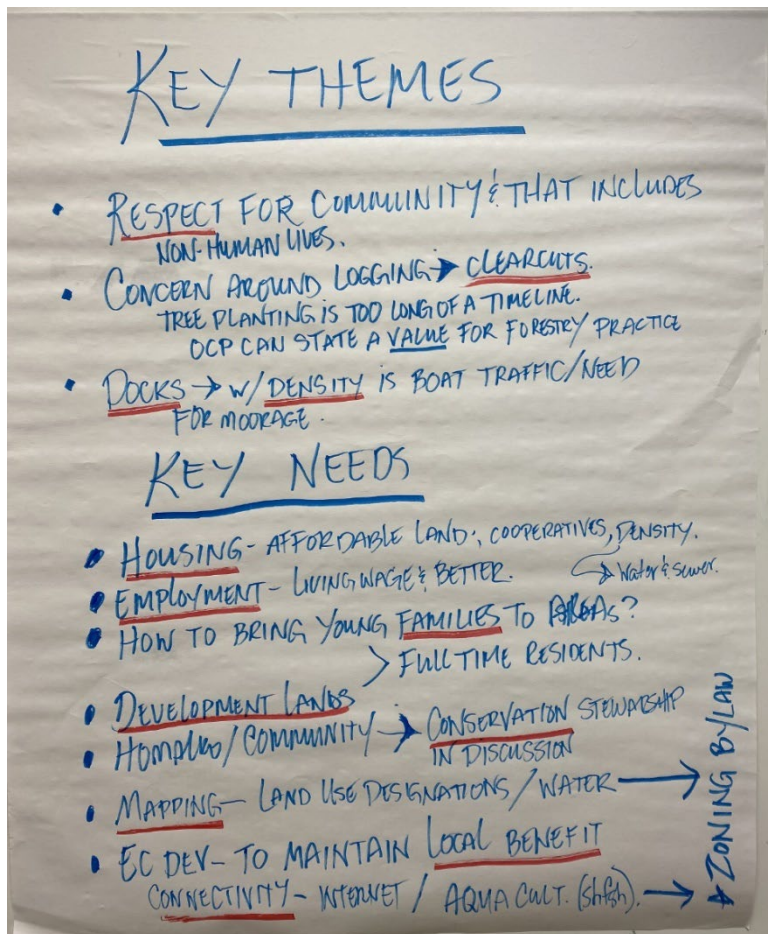 KEY THEMES
• RESPECT FOR COMMUNITY & THAT INCLUDES
NON-HUMAN LIVES.
• CONCERN AROUND LOGGING → CLEARCUTS.
TREE PLANTING IS TOO LONG OF A TIMELINE.
OCP CAN STATE A VALUE FOR FORESTRY PRACTICE
• DOCKS → W/ DENSITY IS BOAT TRAFFIC/NEED
FOR MOORAGE.
KEY NEEDS
• HOUSING - AFFORDABLE LAND; COOPERATIVES, DENSITY.
→ Water & Sewer.
• EMPLOYMENT - LIVING WAGE & BETTER.
• HOW TO BRING YOUNG FAMILIES TO AREAS?
> FULL TIME RESIDENTS.
• DEVELOPMENT LANDS
• HOMALKO/COMMUNITY → CONSERVATION STEWARSHIP
IN DISCUSSION
• MAPPING - LAND USE DESIGNATIONS / WATER →
• EC DEV - TO MAINTAIN LOCAL BENEFIT
CONNECTIVITY - INTERNET / AQUA CULT. (Shfsh). →
ZONING BYLAW